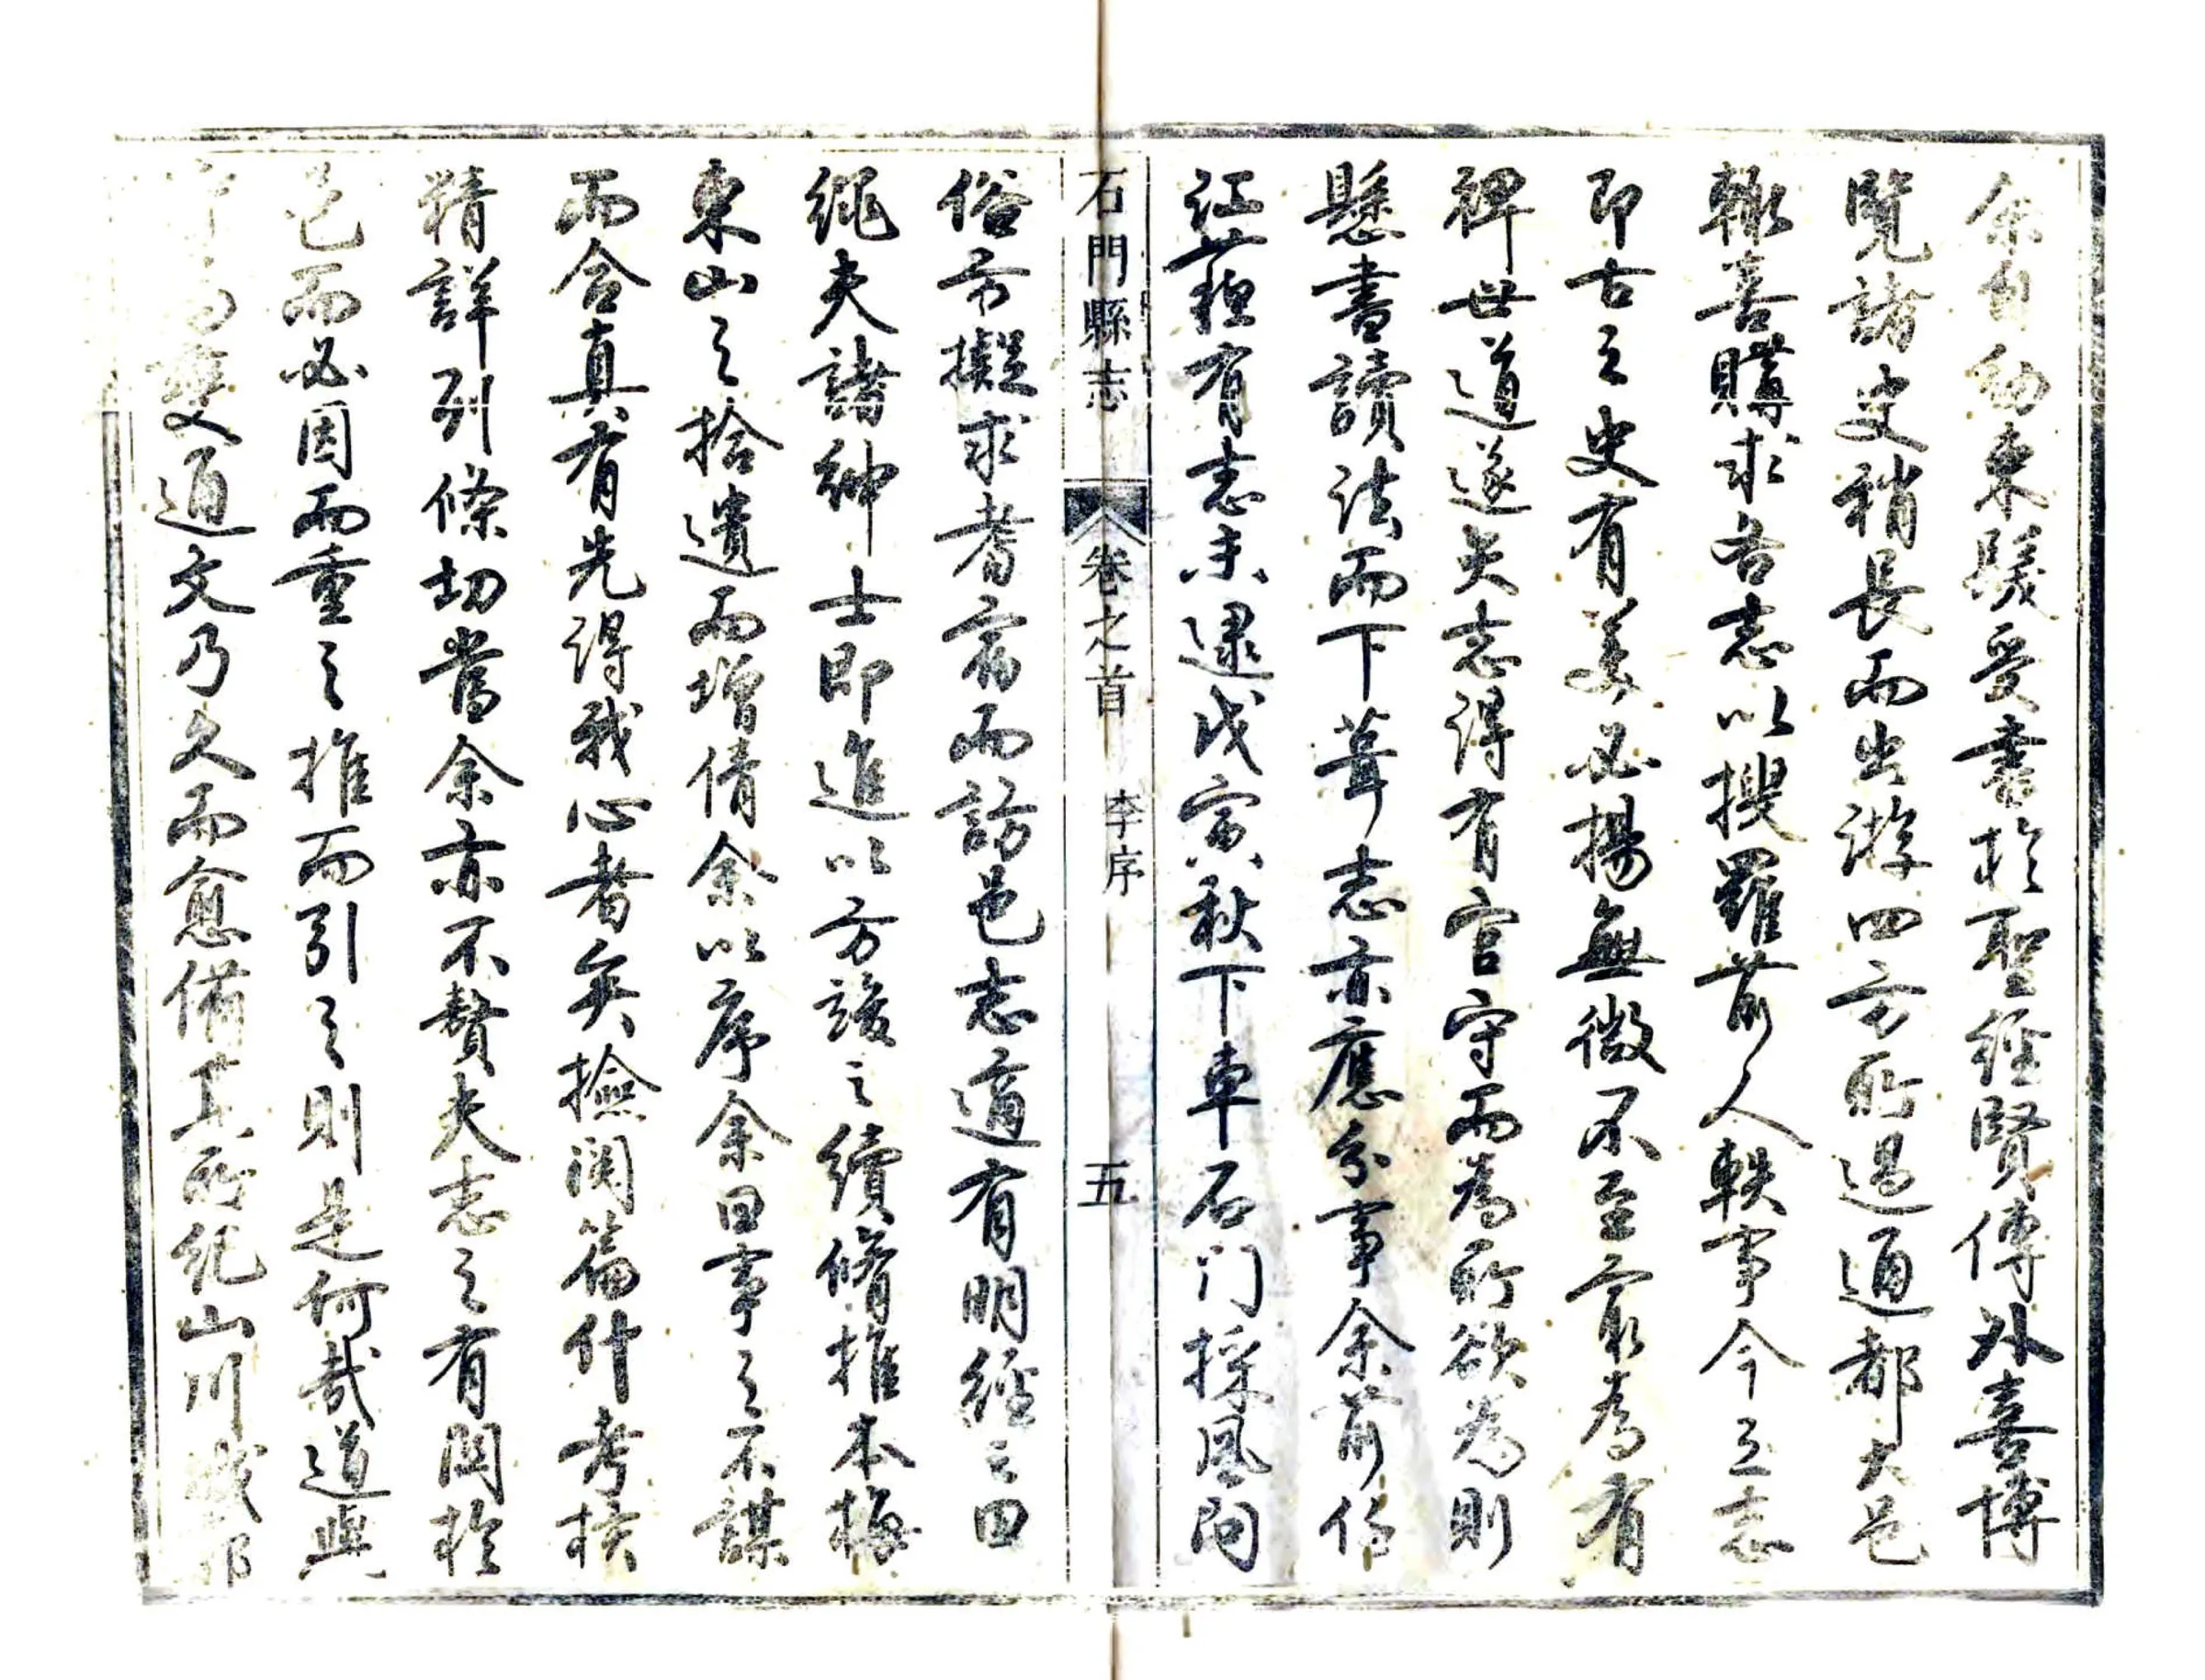 余自幼束髮受書於聖經賢傳外喜博
覽諸史稍長而出游四方所過通都大邑
輒喜購求各志以搜羅前人軼事今之志
即古之史有美必揚無微不至最為有
裨世道遂矢志得有官守而為所欲為則
懸書讀法而下葺志亦應分事余前任
江蘓有志未逮戊寅秋下車石门採風问
石門縣志 卷之首 李序 五
俗方擬求耆宿而訪邑志適有明經之田
繩夫諸紳士即進以方竣之續脩推本梅
東山之拾遺而增倩余以序余曰事之不謀
而合真有先得我心者矣撿閱篇什考核
精詳列條切當余亦不贅夫志之有関於
邑而必因而重之推而引之則是何哉道與
變通文乃久而愈備其所紀山川城郭